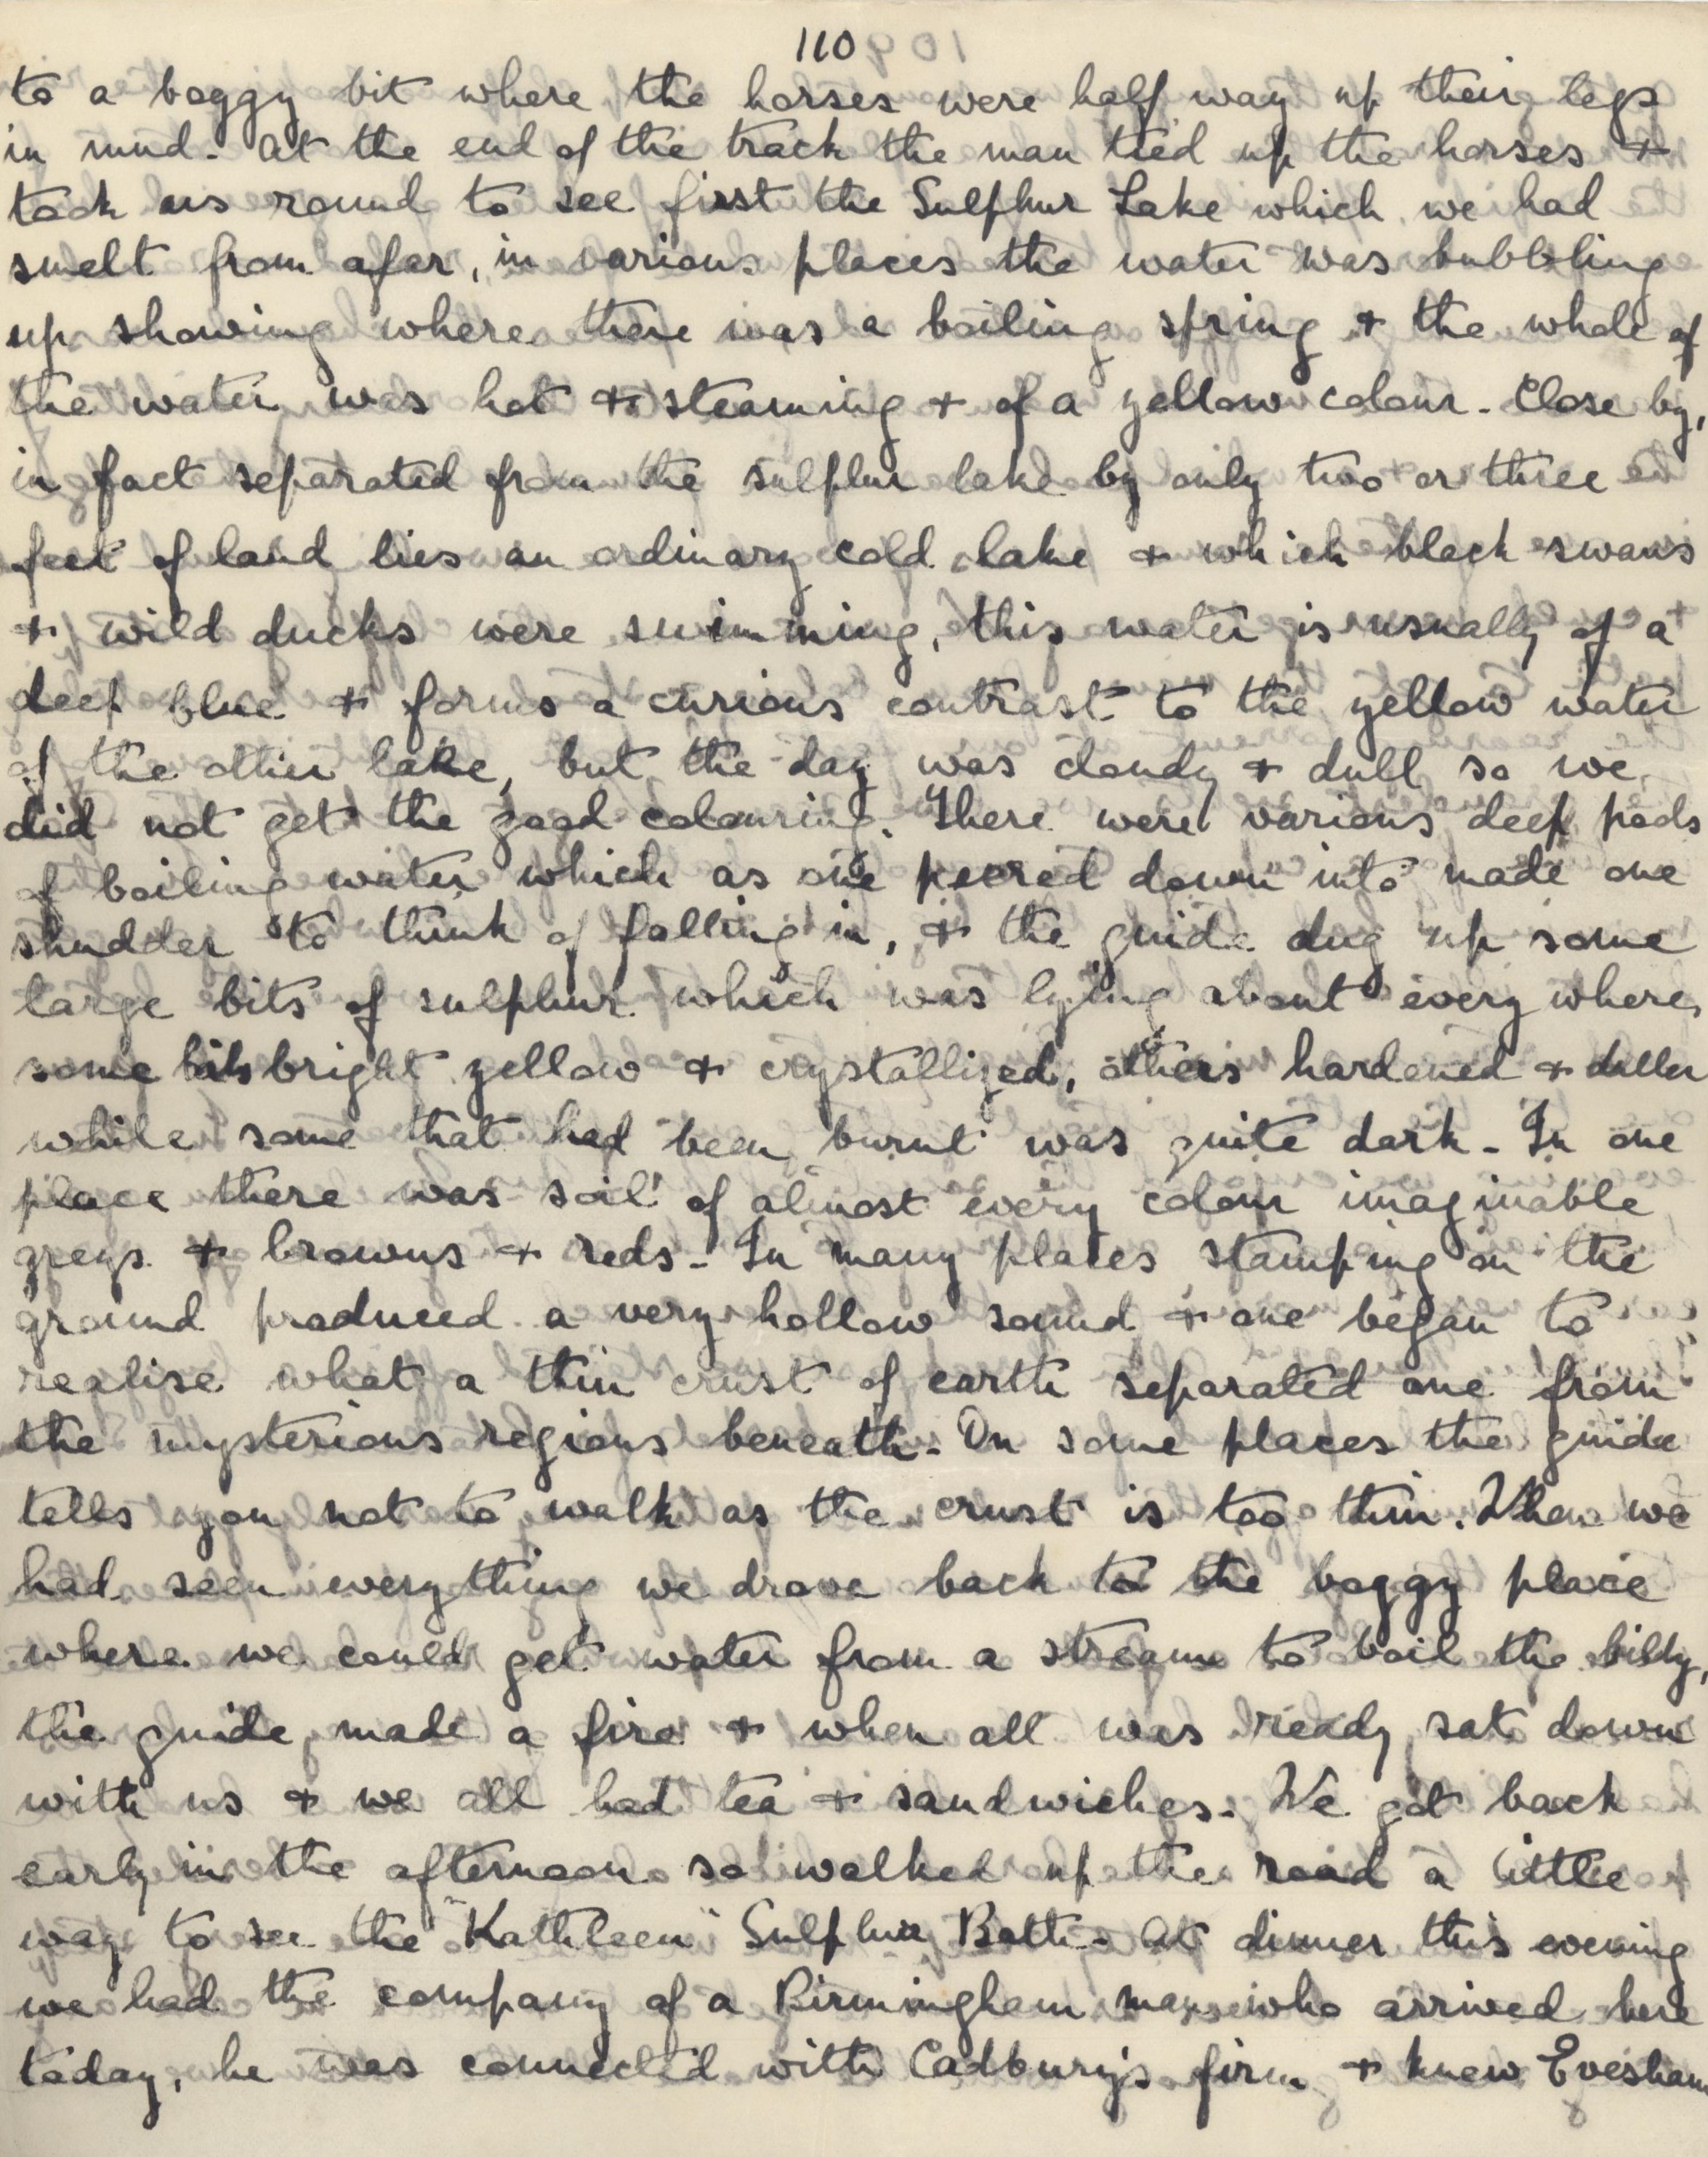 110
to a boggy bit where the horses were half way up their legs
in mud. At the end of the track the man tied up the horses +
took us round to see first the Sulphur Lake which we had
smelt from afar, in various places the water was bubbling
up showing where there was a boiling spring + the whole of
the water was hot + steaming + of a yellow colour. Close by,
in fact separated from the sulphur lake by only two or three
feet of land lies an ordinary cold lake + which black swans
+ wild ducks were swimming, this water is usually of a
deep blue + forms a curious contrast to the yellow water
of the other lake, but the day was cloudy + dull so we
did not get the good colouring. There were various deep pools
of boiling water which as one peered down into made one
shudder to think of falling in, + the guide dug up some
large bits of sulphur which was lying about every where,
some bits bright yellow + crystallized, others hardened + duller
while some that had been burnt was quite dark - In one
place there was soil of almost every colour imaginable
greys + browns + reds - In many places stamping on the
ground produced a very hollow sound + one began to
realise what a thin crust of earth separated one from
the mysterious regions beneath - On some places the guide
tells you not to walk as the crust is too thin. When we
had seen everything we drove back to the boggy place
where we could get water from a stream to boil the billy,
the guide made a fire + when all was ready sat down
with us + we all had tea + sandwiches. We got back
early in the afternoon so walked up the road a little
way to see the "Kathleen" Sulphur Bath - At dinner this evening
we had the company of a Birmingham man who arrived here
today, he was connected with Cadbury's firm + knew Evesham